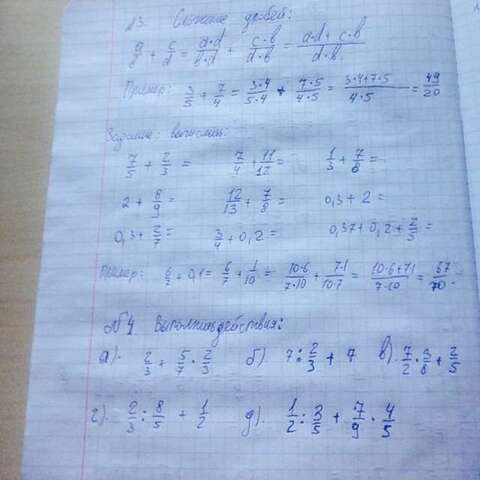 №3 Сложение дробей:
a/b + c/d = a·d/b·d + c·b/d·b = a·d + c·b/d·b
Пример: 3/5 + 7/4 = 3·4/5·4 + 7·5/4·5 = 3·4+7·5/4·5 = 49/20
Задание: вычислить:
7/5 + 2/3 = 7/4 + 11/12 = 1/3 + 7/8 =
2 + 8/9 = 12/13 + 7/8 = 0,3 + 2 =
0,3 + 2/7 = 3/4 + 0,2 = 0,37 + 0,2 + 2/5 =
Пример: 6/7 + 0,1 = 6/7 + 1/10 = 10·6/7·10 + 7·1/10·7 = 10·6+7·1/7·10 = 67/70.
№4 Выполнить действия:
а). 2/3 + 5/7 · 2/3 б) 7 : 2/3 + 7 в). 7/2 · 3/8 + 2/5
г). 2/3 : 8/5 + 1/2 д). 1/2 : 3/5 + 7/9 · 4/5